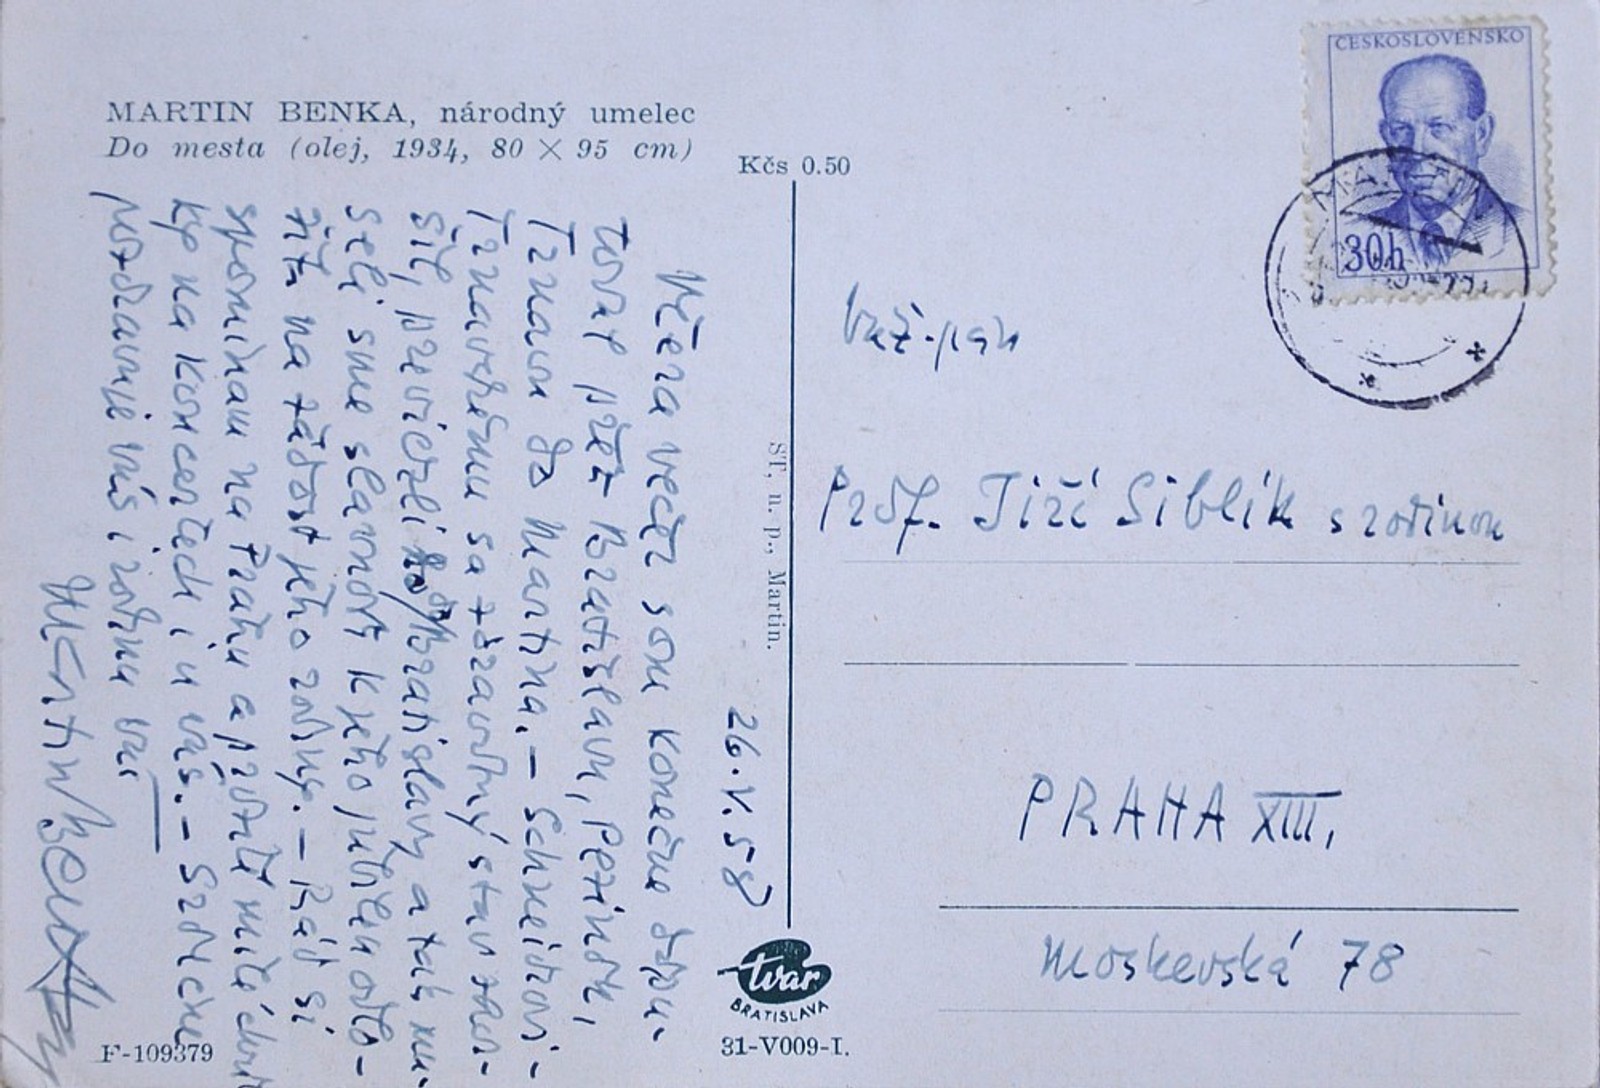 MARTIN BENKA, národný umelec
Do mesta (olej, 1934, 80 × 95 cm)
Kčs 0.50
26.V.58
Včera večer som konečne dopu-
toval přez Bratislavu, Pezinok,
Trnavu do Martina. – Schneidrovi-
Trnavskému sa zdravotný stav zhor-
šil, previezli ho do Bratislavy a tak mu-
seli sme slavnosť k jeho jubileu odlo-
žiť na žádosť jeho rodiny. – Rád si
spomínam na Prahu a prožité milé chvil
ky na koncertech i u vás. – Srdečne
pozdravuje vás i rodinu váš
Martin Benka
F-109379
ST, n. p., Martin.
tvar
BRATISLAVA
31-V009-I.
ČESKOSLOVENSKO
30h
MARTIN
Váž. pán
Prof. Jiří Siblík s rodinou
PRAHA XIII,
Moskevská 78